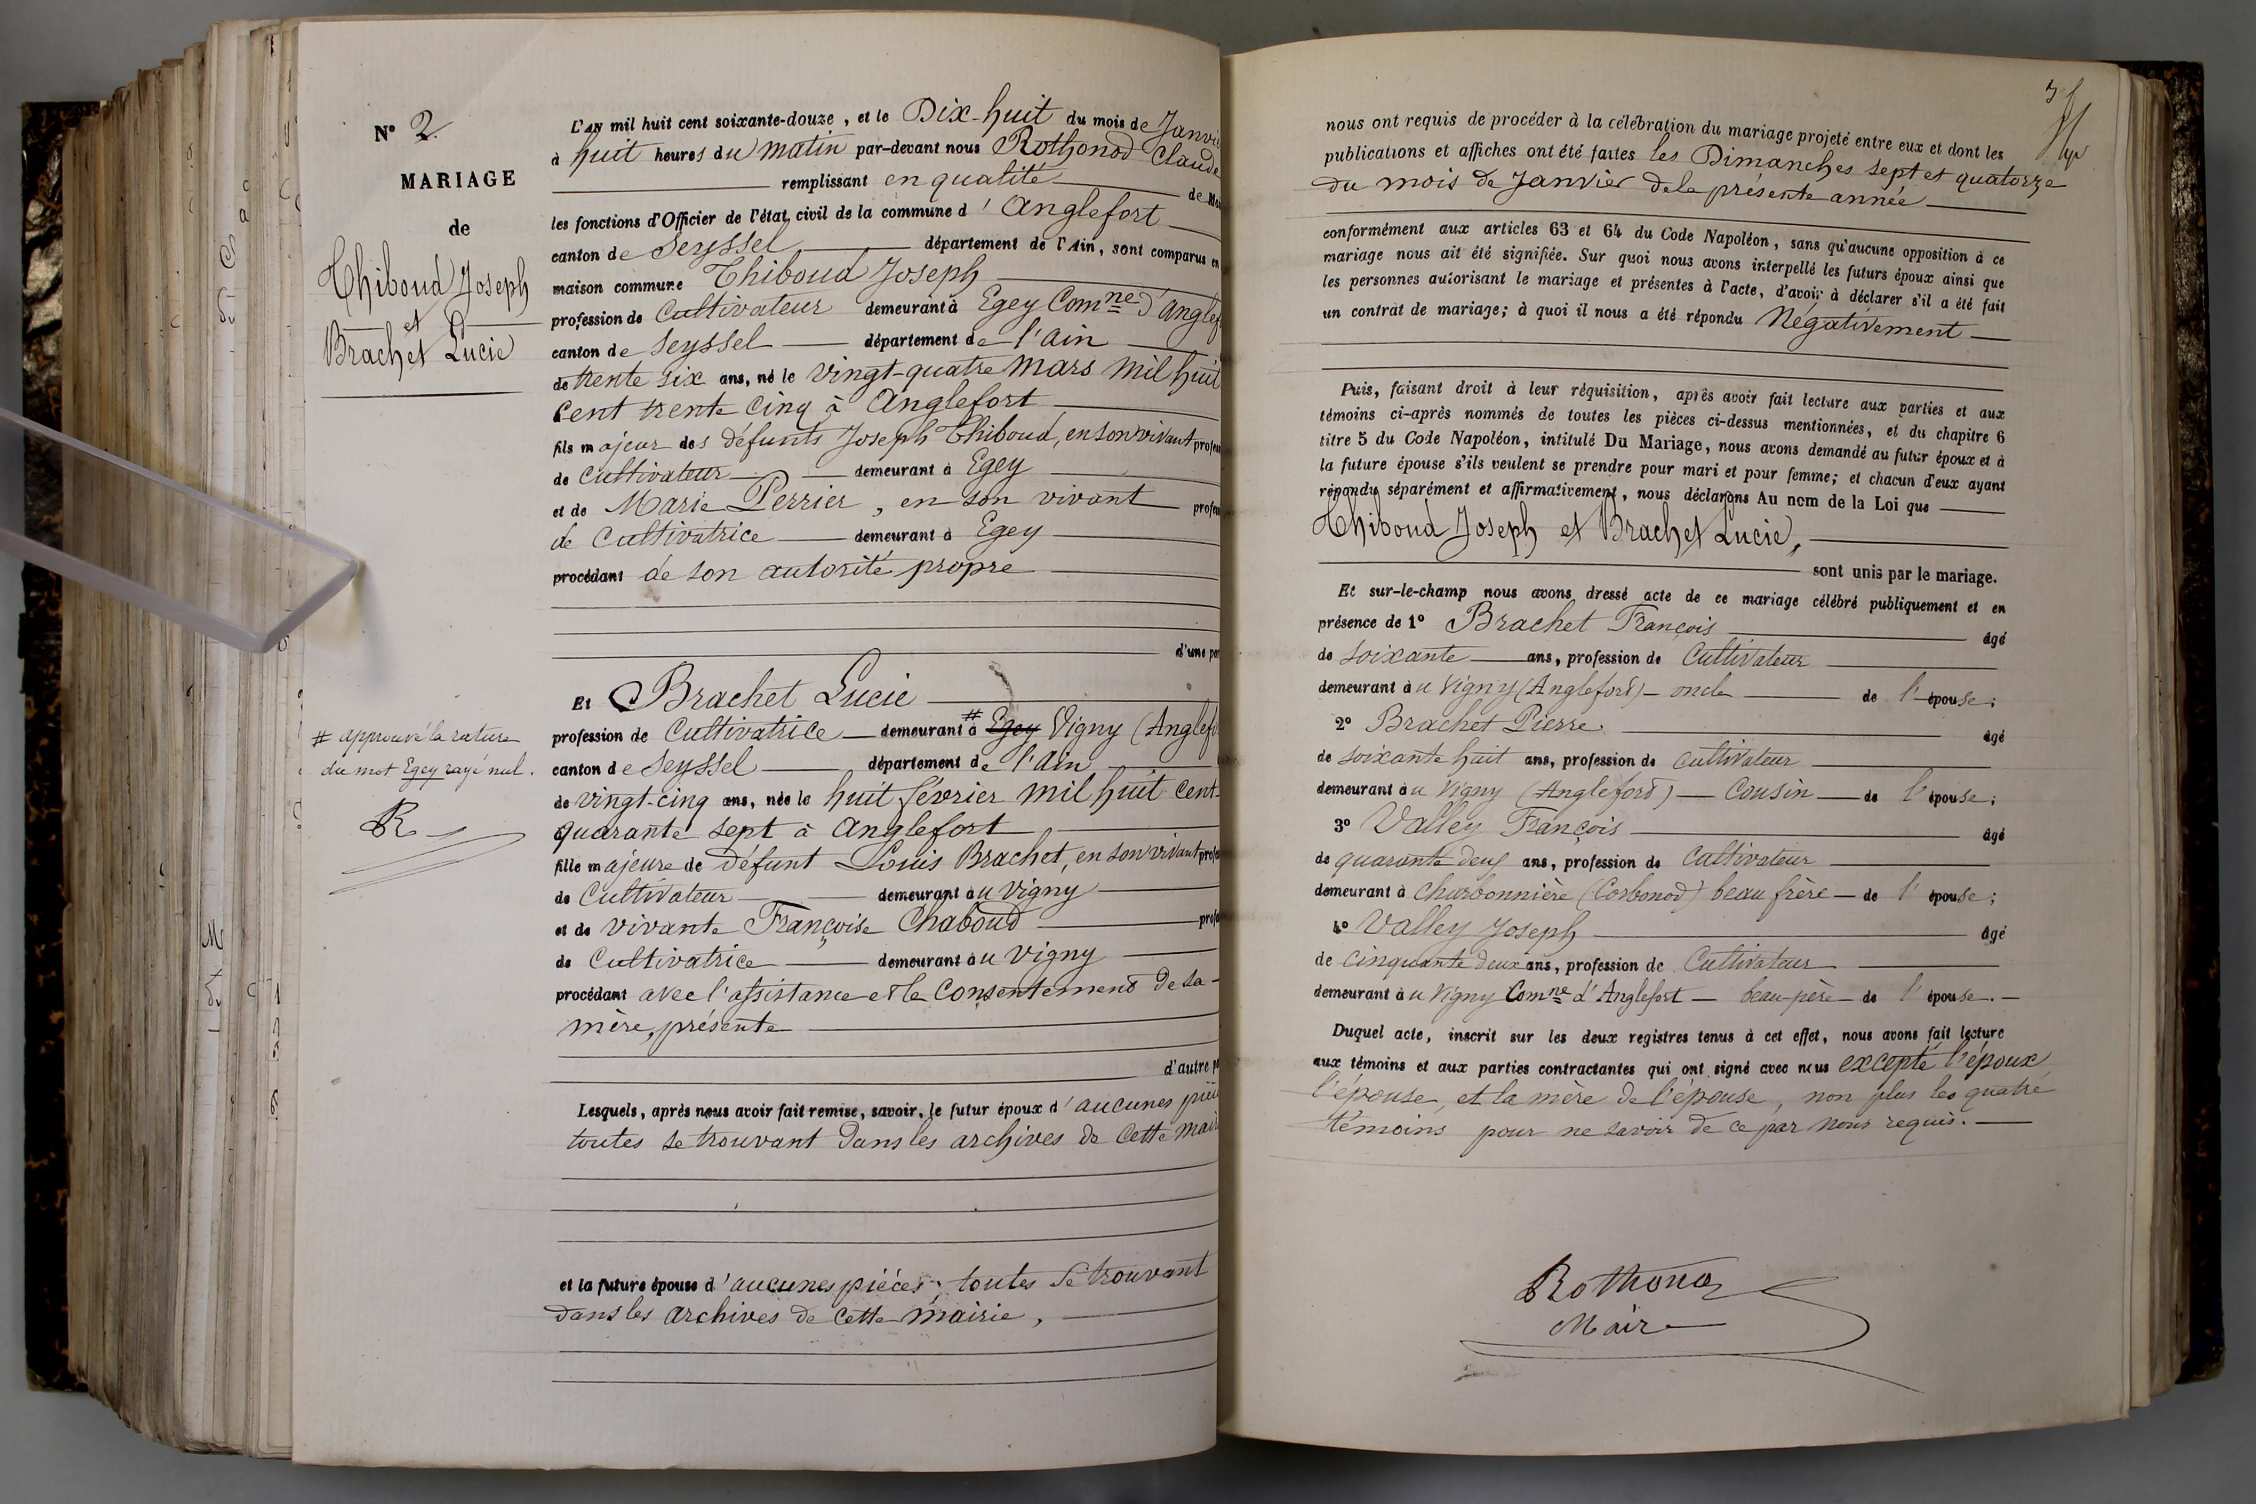 N° 2
MARIAGE
de
Thiboud Joseph
et
Brachet Lucie
# approuvé la rature
du mot Egey rayé nul.
R
L'AN mil huit cent soixante-douze, et le Dix-huit du mois de Janvi
à huit heures du matin par-devant nous Rothonod Claude
remplissant en qualité de Ma
les fonctions d'Officier de l'état civil de la commune d'Anglefort
canton de Seyssel département de l'Ain, sont comparus en
maison commune Thiboud Joseph
profession de Cultivateur demeurant à Egey Comne d'Anglef
canton de Seyssel département de l'Ain
de trente six ans, né le vingt-quatre mars mil huit
cent trente cinq à Anglefort
fils majeur des défunts Joseph Thiboud, en son vivant profes
de Cultivateur demeurant à Egey
et de Marie Perrier, en son vivant profes
de Cultivatrice demeurant à Egey
procédant de son autorité propre
d'une par
Et Brachet Lucie
profession de Cultivatrice demeurant à # Egey Vigny (Anglefo
canton de Seyssel département de l'Ain
de vingt-cinq ans, née le huit février mil huit cent-
quarante sept à Anglefort
fille majeure de défunt Louis Brachet, en son vivant profes
de Cultivateur demeurant au Vigny
et de vivante Françoise Chaboud profes
de Cultivatrice demeurant au Vigny
procédant avec l'assistance et le Consentement de sa
mère, présente
d'autre p
Lesquels, après nous avoir fait remise, savoir, le futur époux d'aucunes pièc
toutes se trouvant dans les archives de cette mair
et la future épouse d'aucunes pièces; toutes se trouvant
dans les archives de cette mairie,
nous ont requis de procéder à la célébration du mariage projeté entre eux et dont les
publications et affiches ont été faites les Dimanches sept et quatorze
du mois de Janvier de la présente année
conformément aux articles 63 et 64 du Code Napoléon, sans qu'aucune opposition à ce
mariage nous ait été signifiée. Sur quoi nous avons interpellé les futurs époux ainsi que
les personnes autorisant le mariage et présentes à l'acte, d'avoir à déclarer s'il a été fait
un contrat de mariage; à quoi il nous a été répondu Négativement
Puis, faisant droit à leur réquisition, après avoir fait lecture aux parties et aux
témoins ci-après nommés de toutes les pièces ci-dessus mentionnées, et du chapitre 6
titre 5 du Code Napoléon, intitulé Du Mariage, nous avons demandé au futur époux et à
la future épouse s'ils veulent se prendre pour mari et pour femme; et chacun d'eux ayant
répondu séparément et affirmativement, nous déclarons Au nom de la Loi que
Thiboud Joseph et Brachet Lucie,
sont unis par le mariage.
Et sur-le-champ nous avons dressé acte de ce mariage célébré publiquement et en
présence de 1° Brachet François âgé
de soixante ans, profession de Cultivateur
demeurant au Vigny (Anglefort) - oncle de l'épouse;
2° Brachet Pierre âgé
de soixante huit ans, profession de cultivateur
demeurant au Vigny (Anglefort) - Cousin de l'épouse;
3° Valley François âgé
de quarante deux ans, profession de Cultivateur
demeurant à Charbonnière (Corbonod) beau frère - de l'épouse;
4° Valley Joseph âgé
de cinquante deux ans, profession de Cultivateur
demeurant au Vigny Comne d'Anglefort - beau-père - de l'épouse.
Duquel acte, inscrit sur les deux registres tenus à cet effet, nous avons fait lecture
aux témoins et aux parties contractantes qui ont signé avec nous excepté l'époux,
l'épouse, et la mère de l'épouse, non plus les quatre
témoins pour ne savoir de ce par nous requis.
Rothonod
Maire